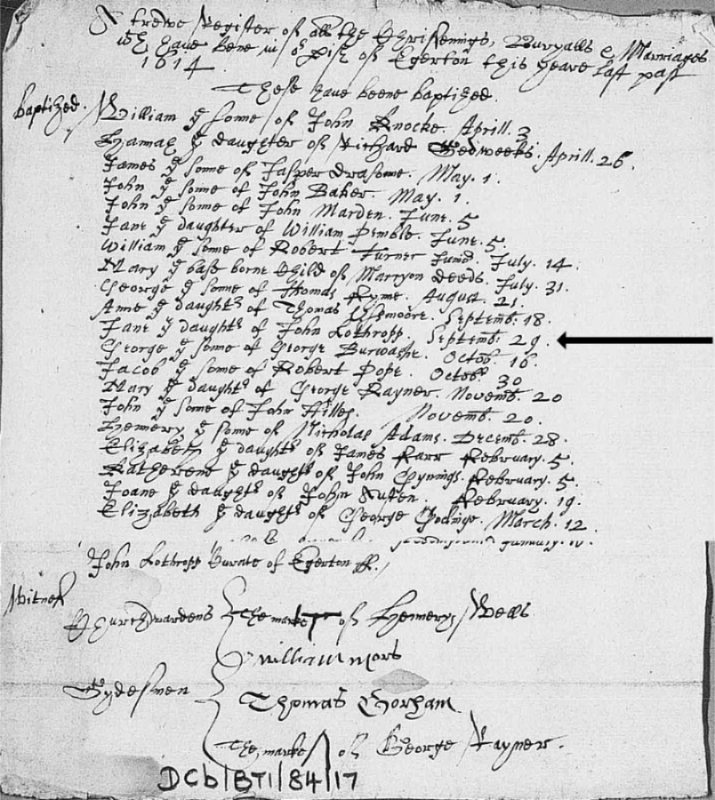 A trewe Register of all the Christenings, Buryalls & Marriages
wch have bene in ye pish of Egerton this yeare last past
1614
These have beene baptized.
baptized. William ye sonne of John Knocke. Aprill. 3
daughter of Richard Aprill. 26
James ye sonne of Jasper May. 1.
John ye sonne of John Baker. May. 1.
John ye sonne of John Marden. June. 5
Jane ye daughter of William Pemble. June. 5.
William ye sonne of Robert Turner July. 14.
Mary ye base borne child of Marryon Deeds. July. 31.
George ye sonne of Thomas Ryme. August. 21.
Anne ye daughtr of Thomas Septemb. 18.
Jane ye daughtr of John Lothropp. Septemb. 29.
George ye sonne of George Burwashe. Octob. 16.
Jacob ye sonne of Robert Pope. Octob. 30
Mary ye daughtr of George Rayner. Novemb. 20
John ye sonne of John Hilles. Novemb. 20.
Hennery ye sonne of Nicholas Adams. Decemb. 28.
Elizabeth ye daughtr of James February. 5.
Katherene ye daughtr of John February. 5.
Joane ye daughtr of John February. 19.
Elizabeth ye daughtr of George March. 12.
John Lothropp Curate of Egerton
Witnes
Churchwardens The marke of Hennery Wells
William Mors
Sydesmen Thomas Gorham
The marke of George Rayner.
DCb/BT1/84/17